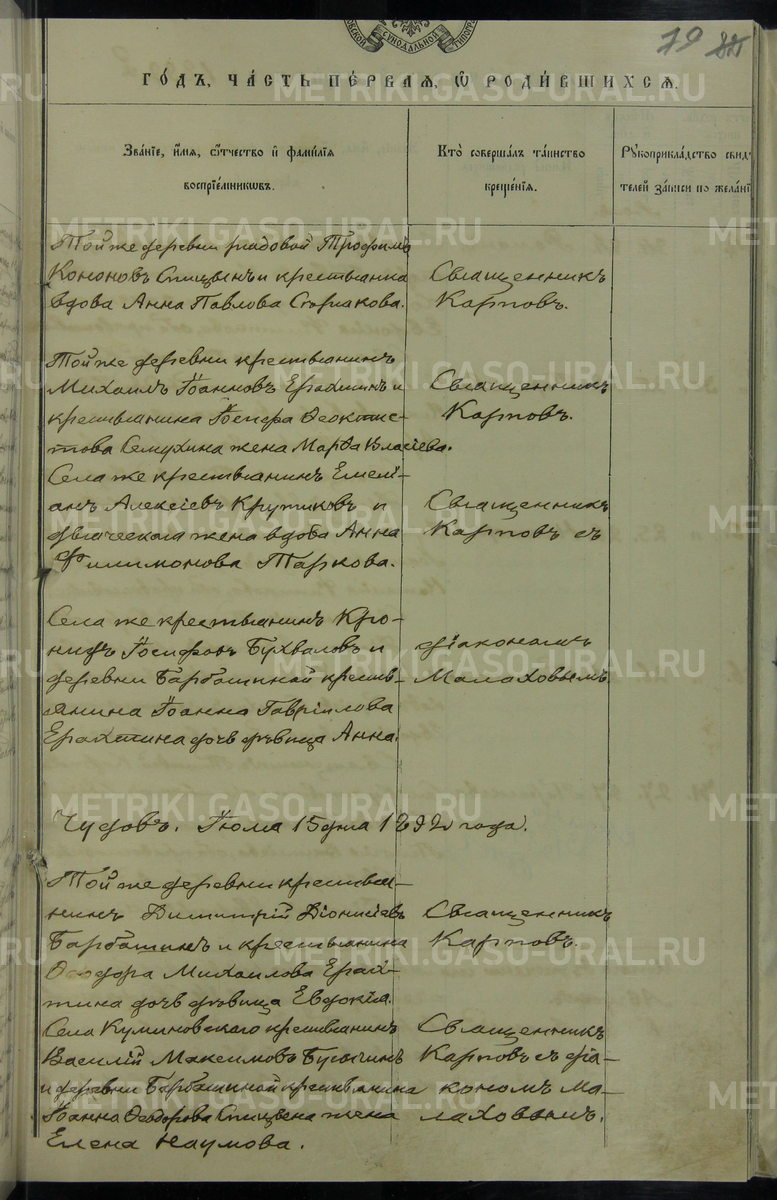 79
СѴНОДАЛЬНОЙ
ГО́ДЪ, ЧА́СТЬ ПЕ́РВАЯ, Ѡ РОДИ́ВШИХСѦ.
Зва́нїе, и҆́мѧ, ѻ҆́тчество и҆ фами́лїѧ
воспрїе́мникѡвъ.
Кто̀ соверша́лъ та́инство
креще́нїѧ.
Рꙋкоприкла́дство свидѣ́
телей за́писи по жела́нї
Той же деревни рядовой Трофимъ
Кононовъ Спицынъ и крестьянка
вдова Анна Павлова Старикова.
Священникъ
Карповъ.
Той же деревни крестьянинъ
Михаилъ Іоанновъ Ерахтинъ и
крестьянина Іосифа Ѳеоктис-
това Семухина жена Марѳа Власіева.
Священникъ
Карповъ.
Села же крестьянинъ Емелі-
анъ Алексіевъ Крутиковъ и
дьяческая жена вдова Анна
Филимонова Таркова.
Священникъ
Карповъ съ
Села же крестьянинъ Кро-
нидъ Іосифовъ Бухваловъ и
деревни Барбашиной крестьѣ-
янина Іоанна Гавріилова
Ерахтина дочь дѣвица Анна.
діакономъ
Малаховымъ
Чудовъ. Іюля 15 дня 1892 года.
Той же деревни крестья-
нинъ Димитрій Діонисіевъ
Барбашинъ и крестьянина
Ѳеодора Михаилова Ерах-
тина дочь дѣвица Евдокія.
Священникъ
Карповъ.
Села Куминовскаго крестьянинъ
Василій Максимовъ Бусыгинъ
и деревни Барбашиной крестьянина
Іоанна Ѳеодорова Спицына жена
Елена Наумова.
Священникъ
Карповъ съ діа-
кономъ Ма-
лаховымъ.
METRIKI.GASO-URAL.RU